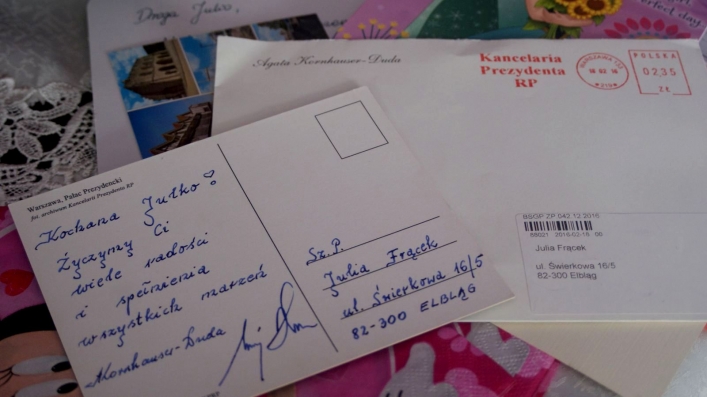 Droga Julio,
Perfect day.
Agata Kornhauser-Duda
Kancelaria
Prezydenta
RP
POLSKA
02,35
ZŁ
BSGP ZP 042 12 2015
Julia Frącek
ul. Świerkowa 16/5
82-300 Elbląg
Warszawa, Pałac Prezydencki
fot. archiwum Kancelarii Prezydenta RP
Kochana Julko!
Życzymy Ci
wiele radości
i spełnienia
wszystkich marzeń
AKornhauser-Duda
Sz.P.
Julia Frącek
ul. Świerkowa 16/5
82-300 ELBLĄG